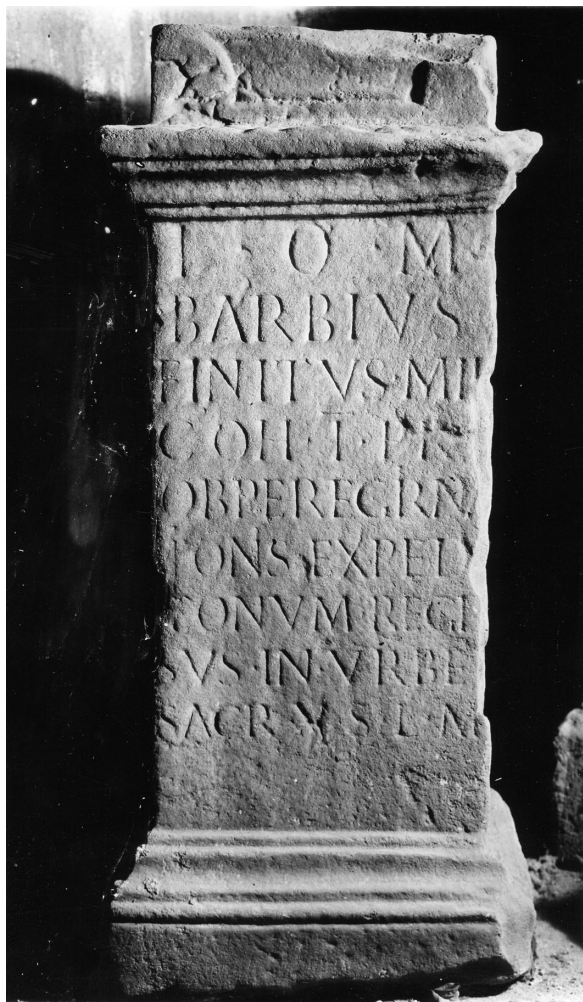 I · O · M
BARBIVS
FINITVS · MIL
COH · I · PR
OB PEREGRN
TONS EXPED
TONVM REGE
SVS · IN VRBE
SACR V S L M